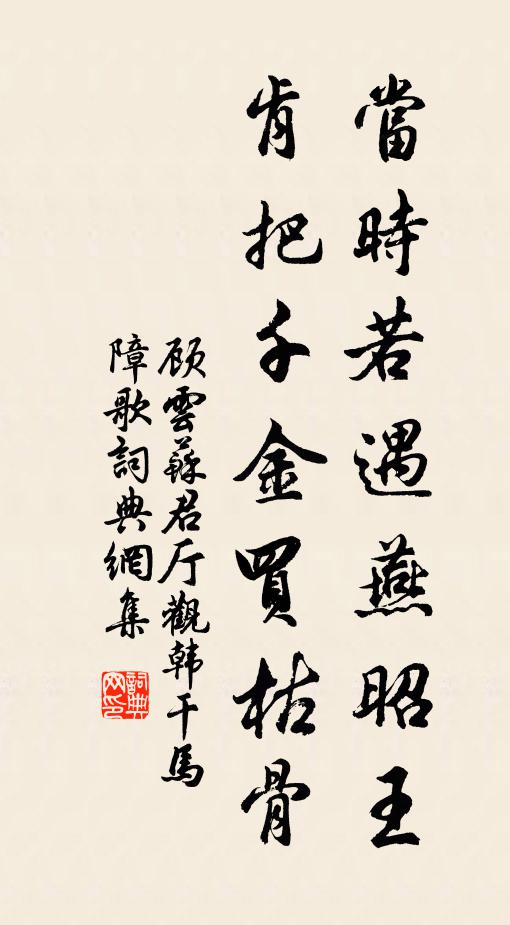 當時若遇燕昭王
肯把千金買枯骨
顾雲蘇君厅觀韩干馬
障歌詞典網集
詞典网印